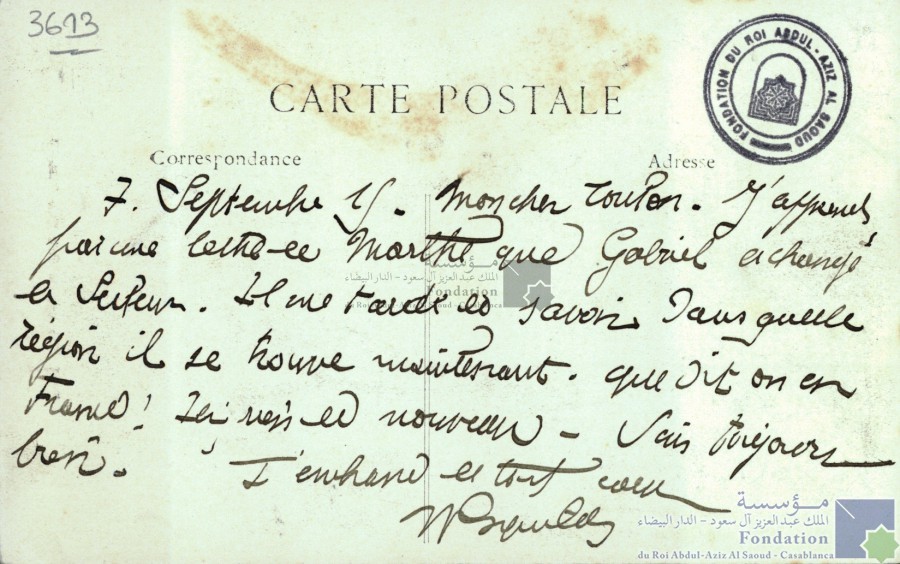 3613
CARTE POSTALE
FONDATION DU ROI ABDUL-AZIZ AL SAOUD
Correspondance
Adresse
7. Septembre 15. Mon cher Tonton. J'apprends
par une lettre de Marthe que Gabriel a changé
de Secteur. Il me tarde de savoir dans quelle
région il se trouve maintenant. que dit on en
France! Ici rien de nouveau - Vais toujours
bien.
T'embrasse de tout coeur
مؤسسة
الملك عبد العزيز آل سعود - الدار البيضاء
Fondation
du Roi Abdul-Aziz Al Saoud - Casablanca
مؤسسة
الملك عبد العزيز آل سعود - الدار البيضاء
Fondation
du Roi Abdul-Aziz Al Saoud - Casablanca